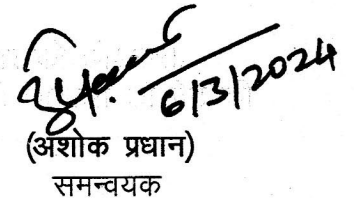 6/3/2024
(अशोक प्रधान)
समन्वयक